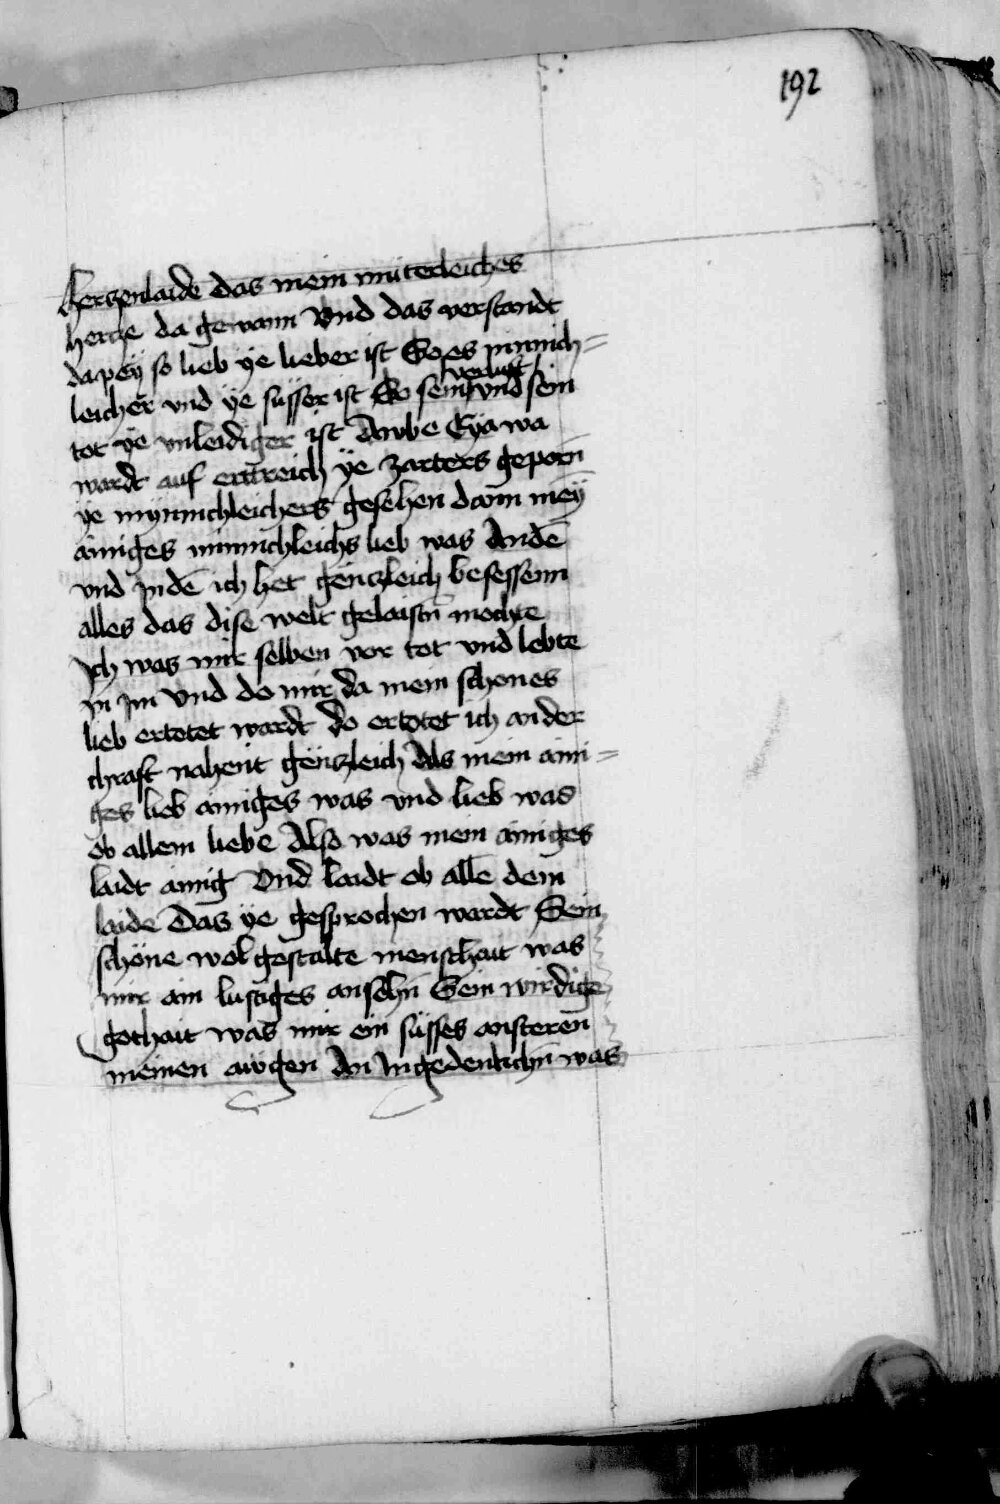 192
herczenlaide das mein müterleiches
hercze da gewann Vnd das verstandt
dapey so lieb ye lieber ist So es minnich=
leicher vnd ye süsser ist So sein verlust vnd sein
tot ye vnleidiger ist Awbe Eya wa
wardt auf ertreich ÿe zarters geporn̄
ye mynnichleichers gesehen dann meȳ
ainiges minnichleichs lieb was An dē
vnd Jn dē ich het gënczleich besessenn
alles das dise welt gelaistn̄ mochte
Jch was mir selben vor tot vnd lebte
jn jm Vnd do mir da mein schones
lieb ertotet wardt do ertotet ich an der
chraft nahent gënczleich Als mein aini=
ges lieb ainiges was vnd lieb was
ob allem liebe Also was mein ainiges
laidt ainig Vnd laidt ob allē dem
laide Das ÿe gesprochen wardt Sein
schöne wolgestalte menschait was
mir ain lustiges ansehn̄ Sein wirdige
gothait was mir ein süsses
meinen awgen An Jngedenkchn̄ was